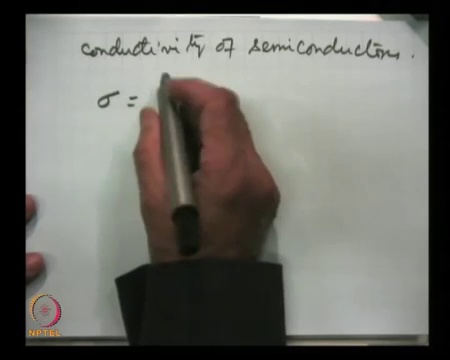 conductivity of semiconductors.
σ =
NPTEL